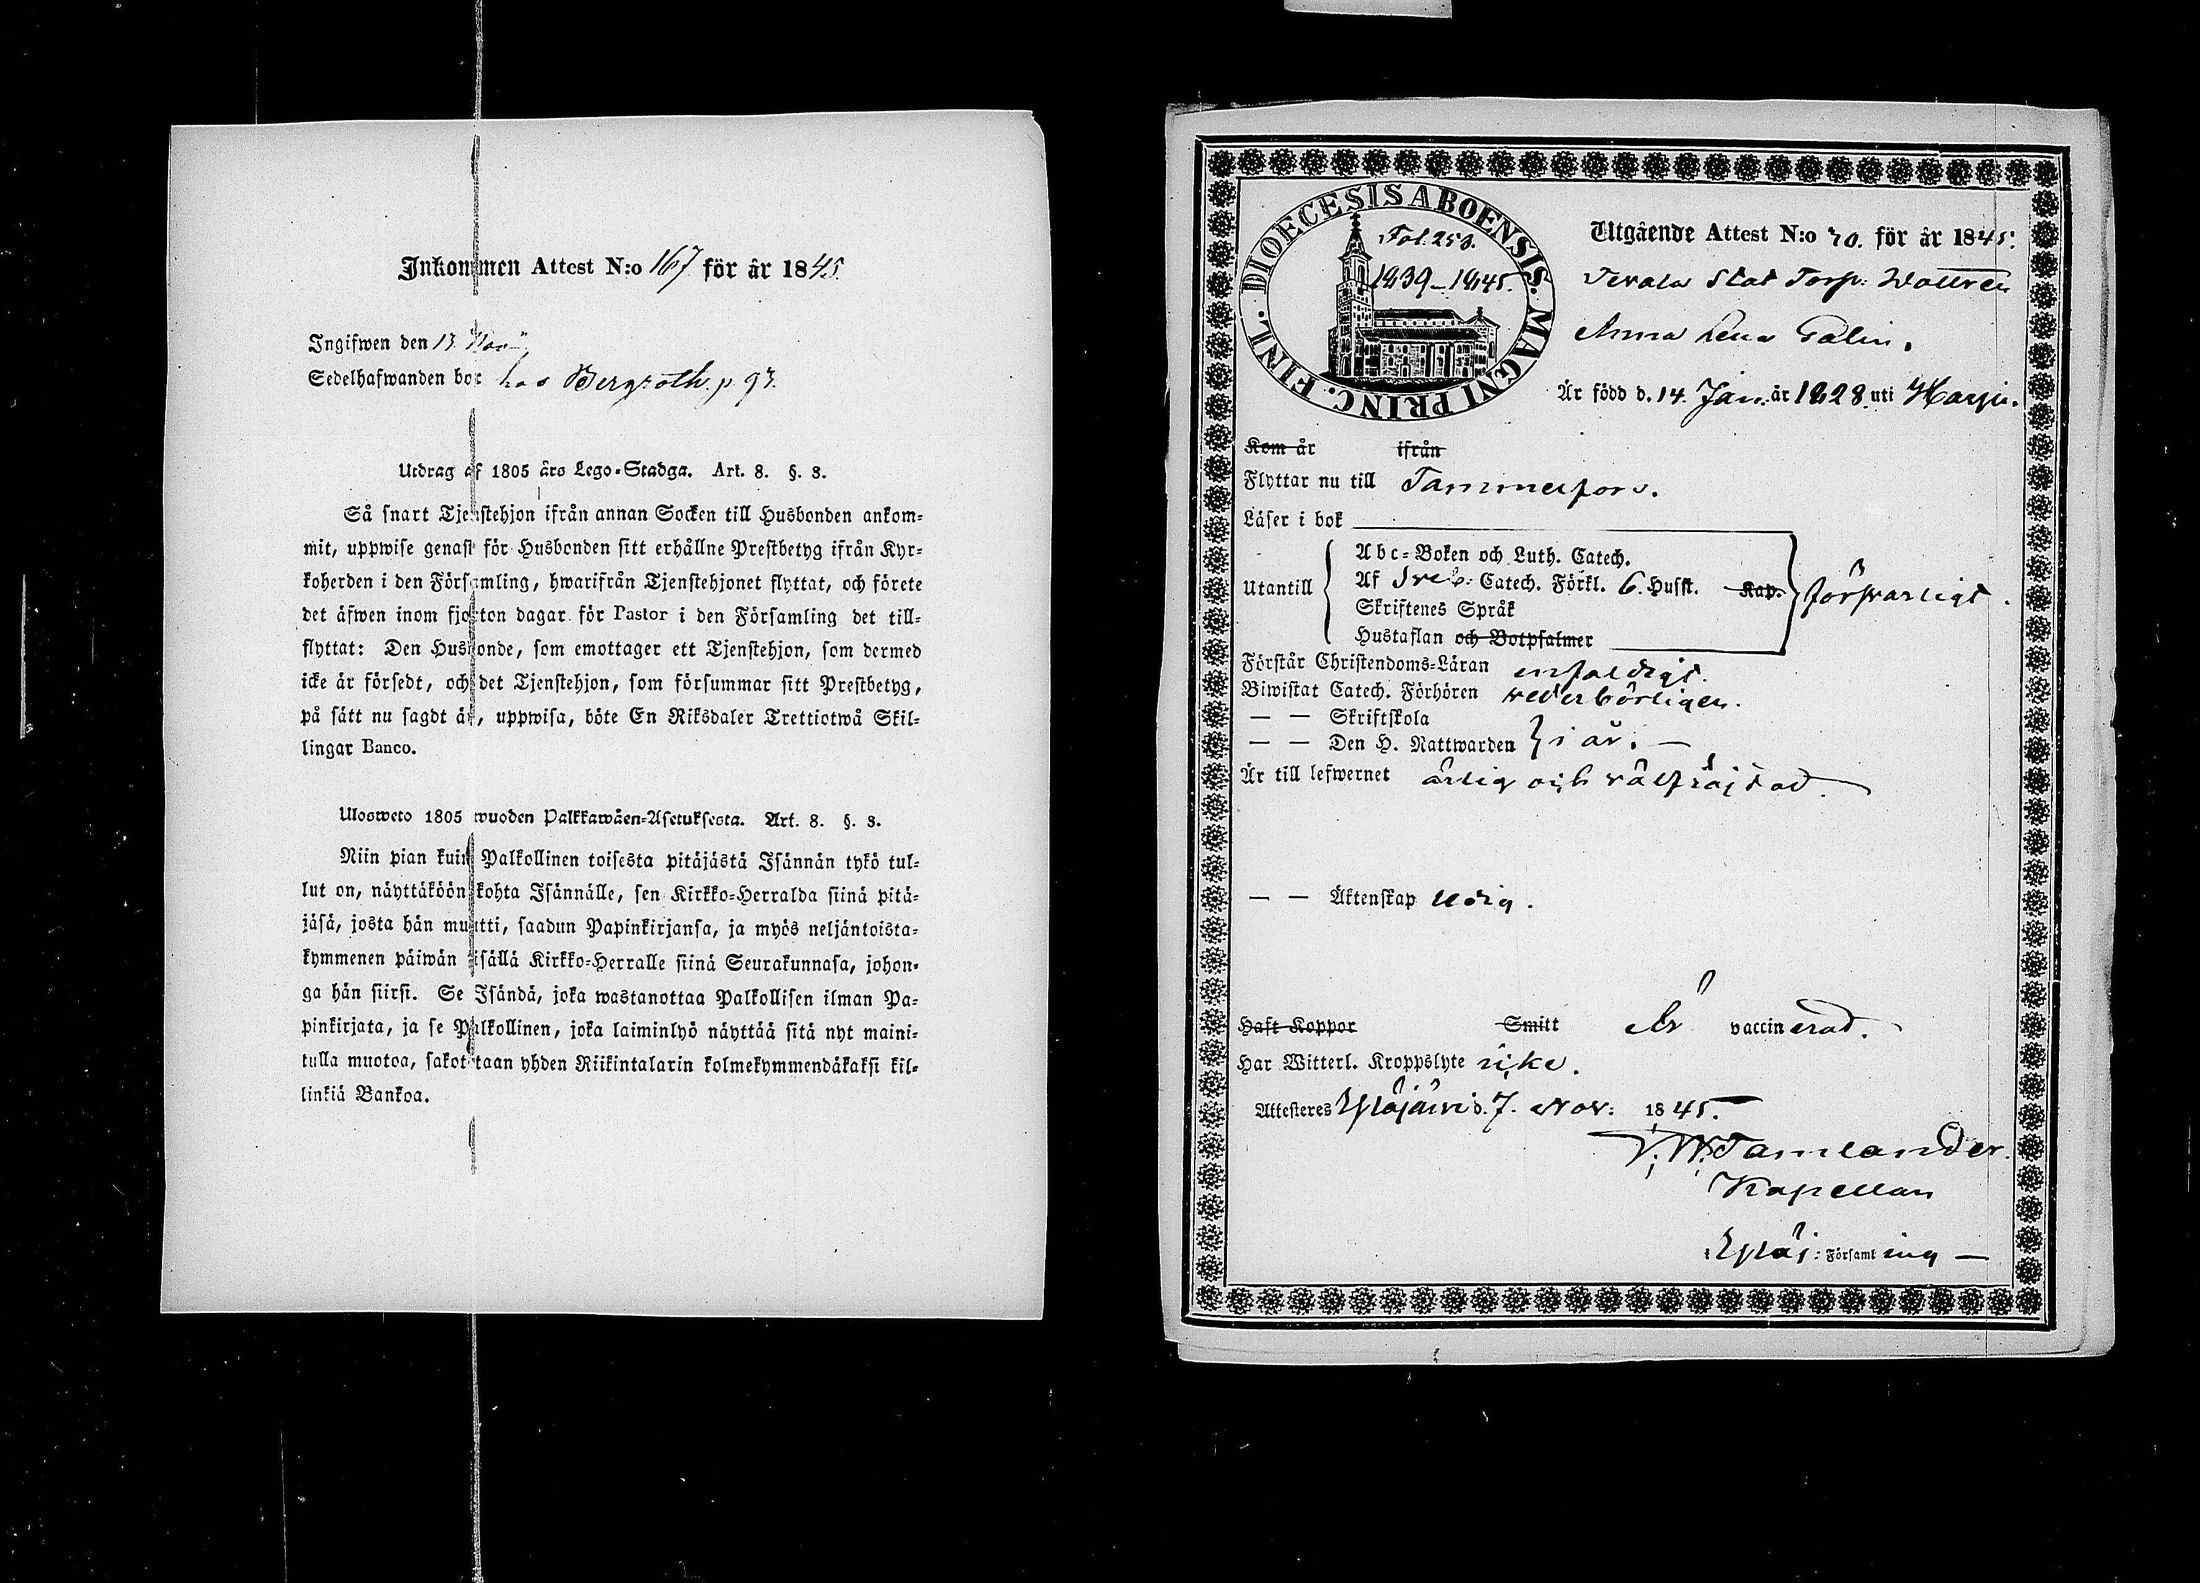 Inkommen Attest N:o 167 för år 1845.
Ingifwen den 13
Sedelhafwanden bor hos Bergroth. p 93.
Utdrag af 1805 års Lego-Stadga. Art. 8. §. 8.
Så snart Tjenstehjon ifrån annan Socken till Husbonden ankom=
mit, uppwise genast för Husbonden sitt erhållne Prestbetyg ifrån Kyr=
koherden i den Församling, hwarifrån Tjenstehjonet flyttat, och förete
det äfwen inom fjorton dagar för Pastor i den Församling det till=
flyttat: Den Husbonde, som emottager ett Tjenstehjon, som dermed
icke är försedt, och det Tjenstehjon, som försummar sitt Prestbetyg,
på sätt nu sagdt är, uppwisa, böte En Riksdaler Trettiotwå Skil=
lingar Banco.
Ulosweto 1805 wuoden Palkkawäen=Asetuksesta. Art. 8. §. 8.
Niin pian kuin Palkollinen toisesta pitäjästä Isännän tykö tul=
lut on, näyttäköön kohta Isännälle, sen Kirkko=Herralda siinä pitä=
jäsä, josta hän muutti, saadun Papinkirjansa, ja myös neljäntoista=
kymmenen päiwän sisällä Kirkko=Herralle siinä Seurakunnasa, johon=
ga hän siirsi. Se Isändä, joka wastanottaa Palkollisen ilman Pa=
pinkirjata, ja se Palkollinen, joka laiminlyö näyttää sitä nyt maini=
tulla muotoa, sakotetaan yhden Riikintalarin kolmekymmendäkaksi kil=
linkiä Bankoa.
DIOECESIS ABOENSIS. MAGNI PRINC. FINL.
Fol. 250.
1839–1845.
Utgående Attest N:o 70. för år 1845.
Stat Torp:
Anna Lena Palin.
Är född d. 14. Jan. år 1828. uti Harju.
Kom år ifrån
Flyttar nu till Tammerfors.
Läser i bok
Utantill
Abc=Boken och Luth. Catech.
Af Sveb. Catech. Förkl. 6. Husst. Kap.
Skriftenes Språk
Hustaflan och Botpsalmer
försvarligt.
Förstår Christendoms=Läran enfaldigt.
Biwistat Catech. Förhören vederbörligen.
— — Skriftskola
— — Den H. Nattwarden } i år. —
Är till lefwernet ärlig och välfräjdad.
— — Äktenskap ledig.
Haft Koppor Smitt Är vaccinerad.
Har Witterl. Kroppslyte icke.
Attesteres Ylöjärvi d. 7. Nov: 1845.
V. W. Tamlander.
Kapellan
i Ylöj: Församling —